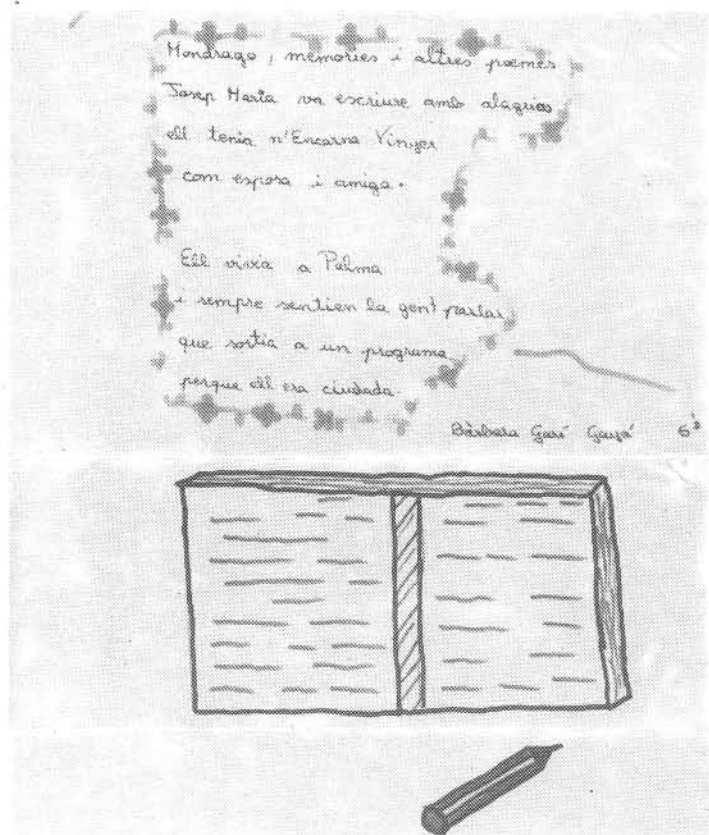 Mondrago, memories i altres poemes
Josep Maria va escriure amb alegria
ell tenia n'Encarna Vinyes
com esposa i amiga.
Ell vivia a Palma
i sempre sentien la gent parlar
que sortia a un programa
perque ell era ciudada.
Bàrbara Garí Gayà 6è